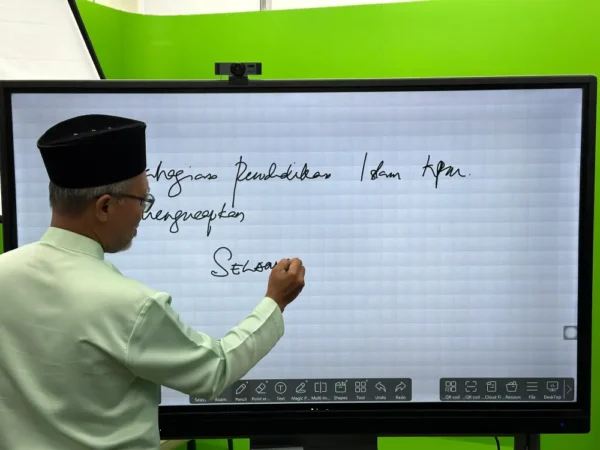 ahagian Pendidikan Islam KPM.
mengucapkan
SELAM
Select Room Pencil Text Magic P... Multi in... Shapes Tool Undo Redo QR cod... QR cod... Cloud Fi... Resourc File DeskTop